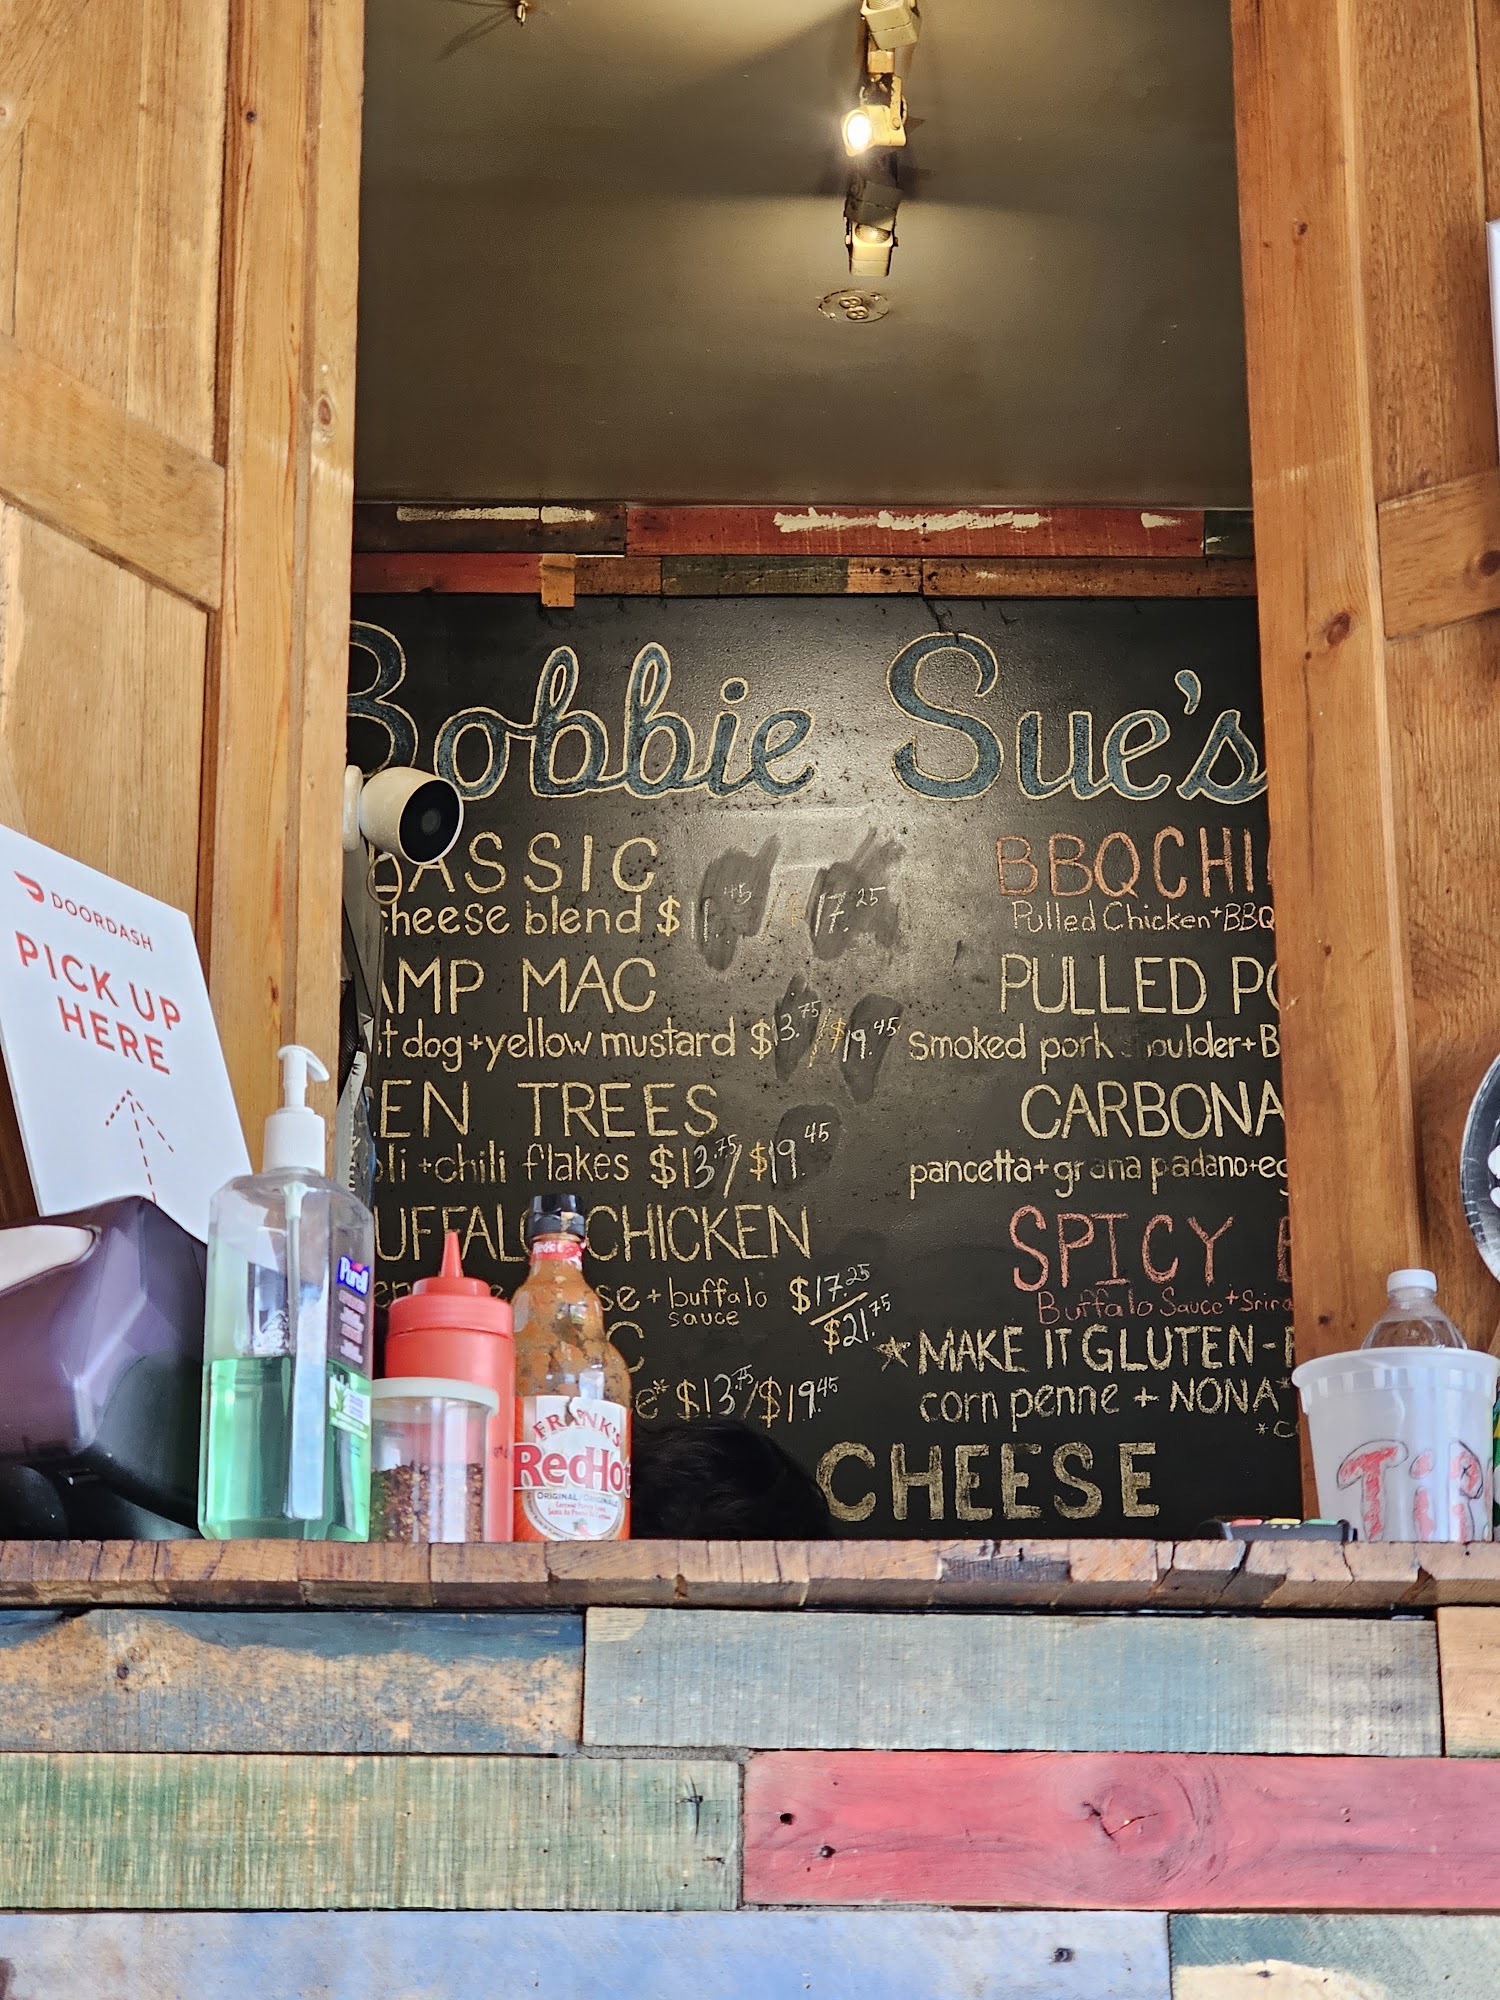 DOORDASH
PICK UP
HERE
Bobbie Sue's
ASSIC
cheese blend $11.45/$17.25
AMP MAC
t dog+yellow mustard $13.75/$19.45
EN TREES
oli+chili flakes $13.75/$19.45
UFFALO CHICKEN
se + buffalo sauce $17.25
$21.75
C
e* $13.75/$19.45
BBQ CHI
Pulled Chicken+BBQ
PULLED PO
smoked pork houlder+B
CARBONA
pancetta+grana padano+eg
SPICY
Buffalo Sauce+Srira
*MAKE IT GLUTEN-F
corn penne + NONA
CHEESE
Purell
FRANK'S
RedHot
ORIGINAL
TiP